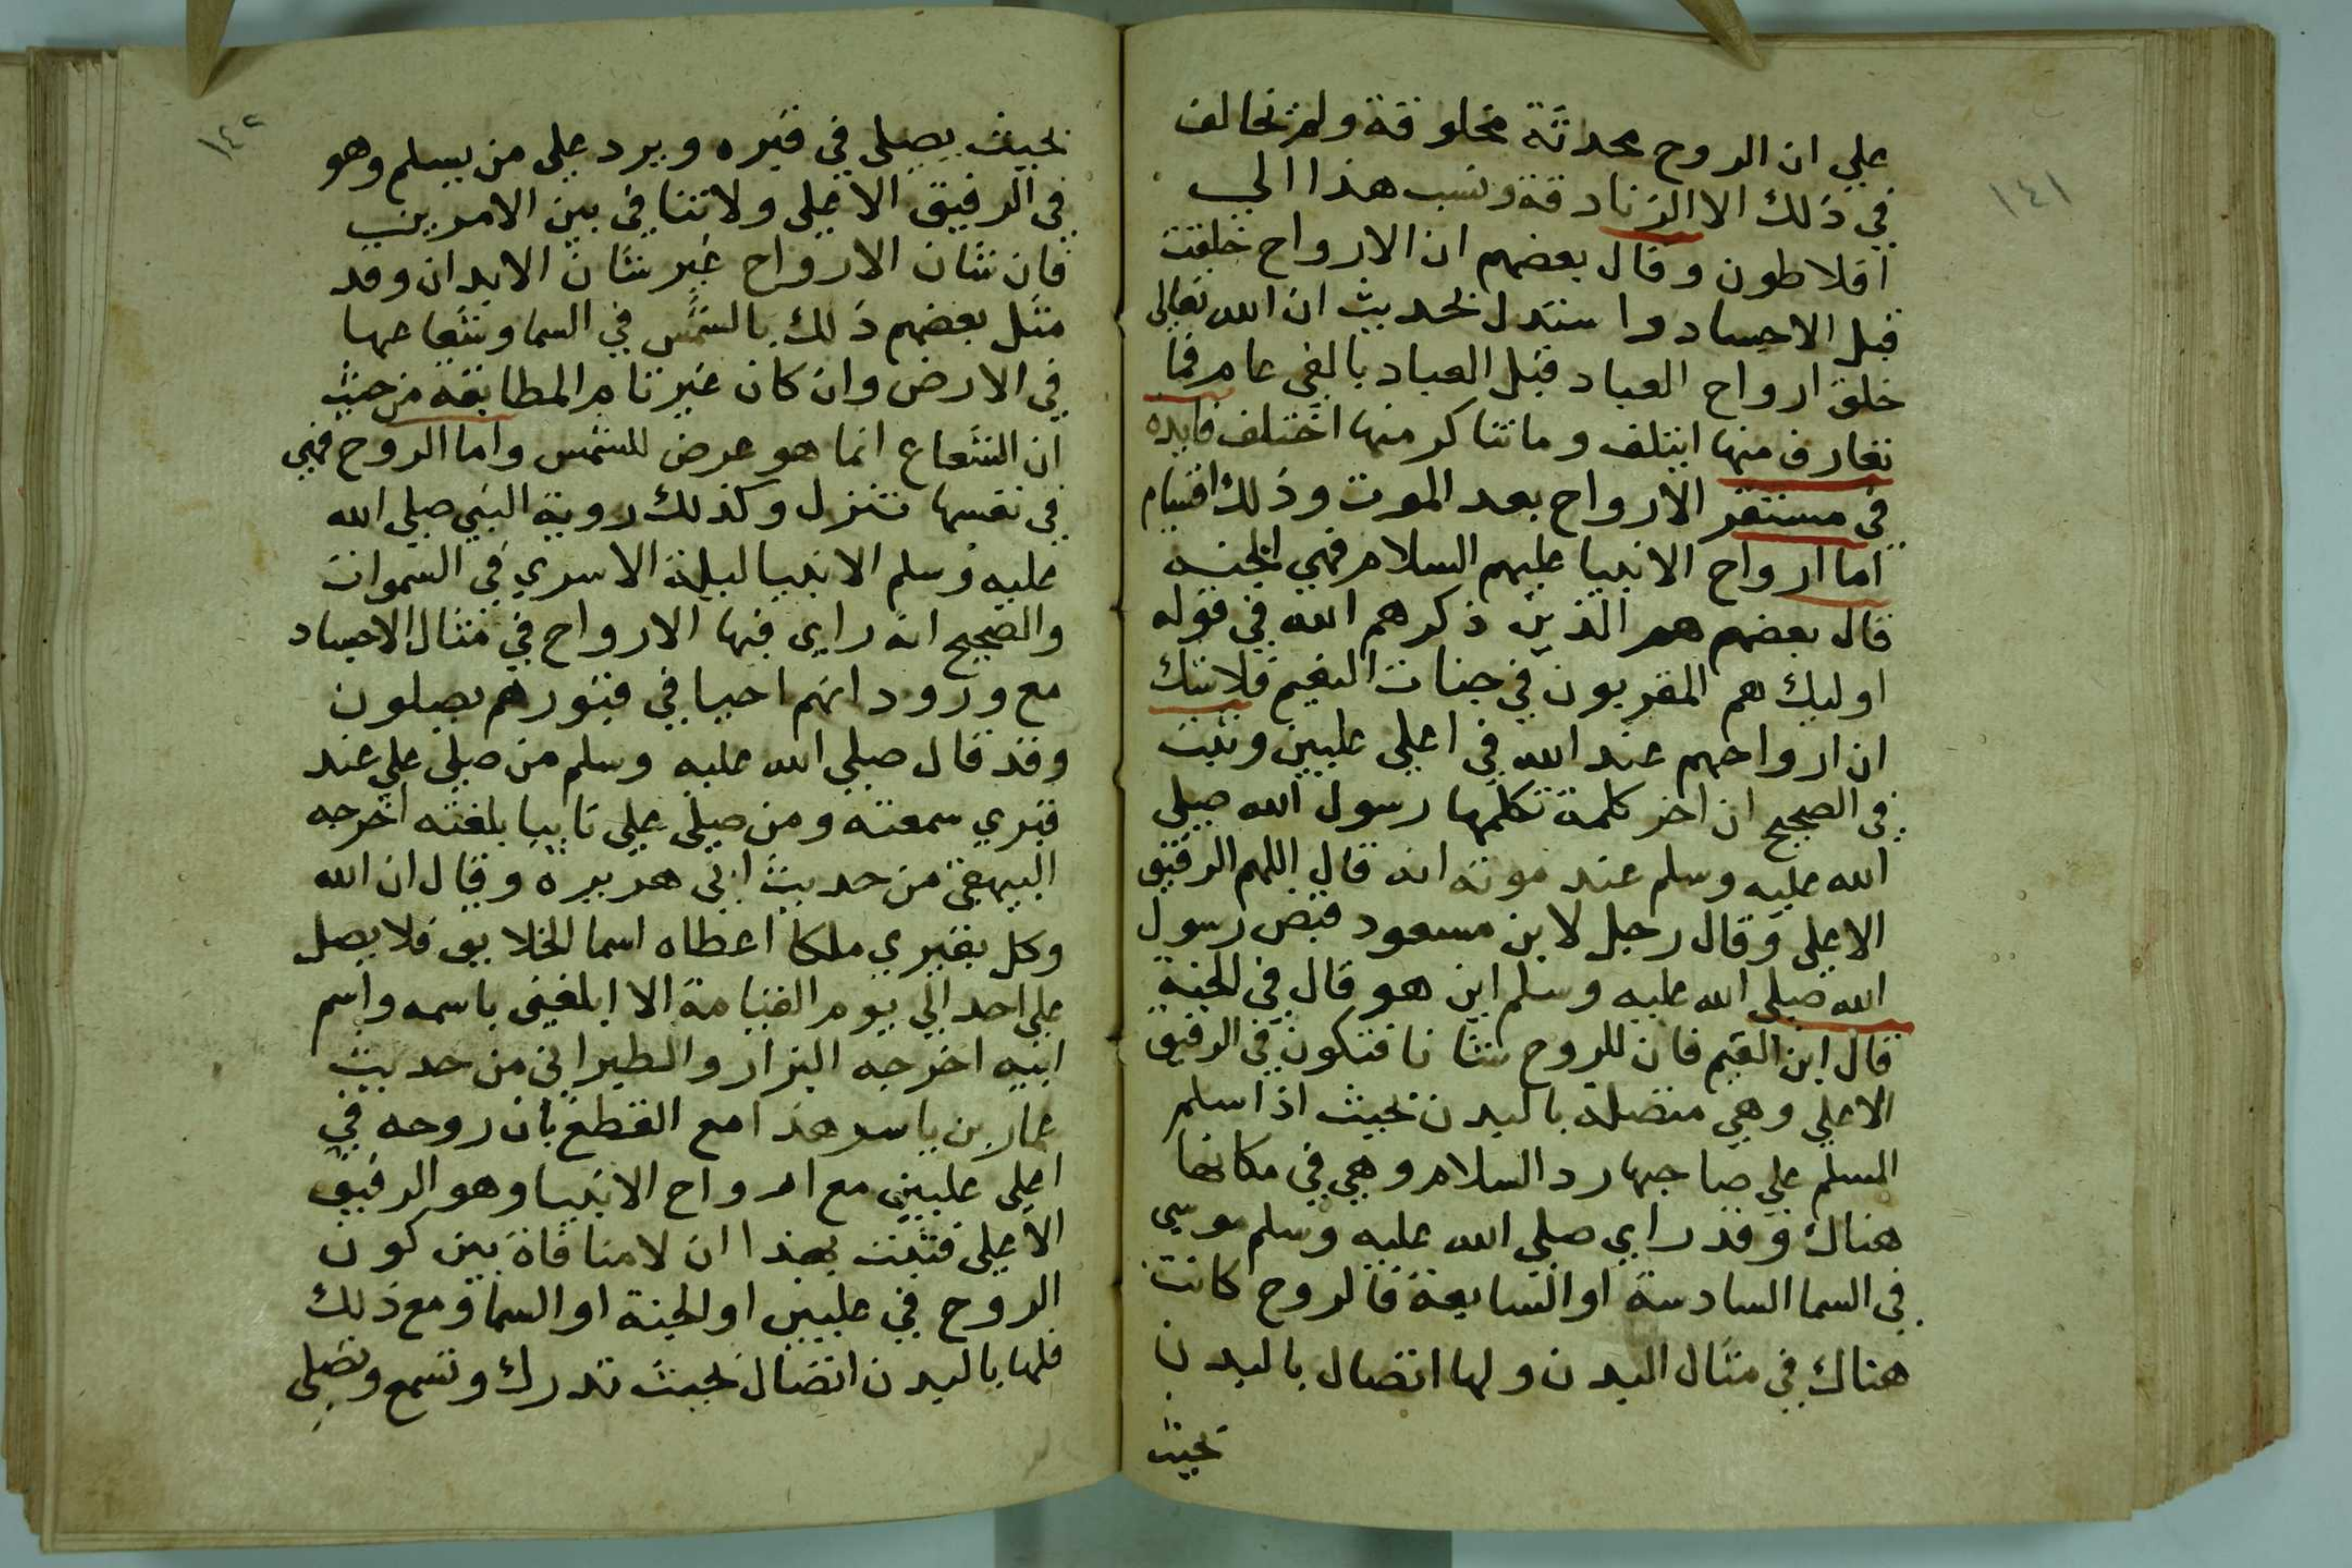 ١٤١
علي ان الروح محدثة مخلوقة ولم تخالف
في ذلك الا الزنادقة ونسب هذا الي
افلاطون وقال بعضهم ان الارواح خلقت
قبل الاجساد واستدل بحديث ان الله تعالى
خلق ارواح العباد قبل العباد بالفي عام فما
تعارف منها ايتلف وما تناكر منها اختلف فايده
في مستقر الارواح بعد الموت وذلك اقسام
اما ارواح الانبيا عليهم السلام فهي الجنه
قال بعضهم هم الذين ذكرهم الله في قوله
اوليك هم المقربون في جنات النعيم فلا شك
ان ارواحهم عند الله في اعلي عليين وثبت
في الصحيح ان اخر كلمة تكلمها رسول الله صلي
الله عليه وسلم عند موته انه قال اللهم الرفيق
الاعلي وقال رجل لابن مسعود قبض رسول
الله صلي الله عليه وسلم اين هو قال في الجنة
قال ابن القيم فان للروح شانا فتكون في الرفيق
الاعلي وهي متصلة بالبدن بحيث اذا سلم
المسلم علي صاحبها رد السلام وهي في مكانها
هناك وقد راي صلي الله عليه وسلم موسي
في السما السادسة او السابعة فالروح كانت
هناك في مثال البدن ولها اتصال بالبدن
بحيث
١٤٢
بحيث يصلي في قبره ويرد علي من يسلم وهو
في الرفيق الاعلي ولا تنافي بين الامرين
فان شان الارواح غير شان الابدان وقد
مثل بعضهم ذلك بالشمس في السما وشعاعها
في الارض وان كان غير تام المطابقة من حيث
ان الشعاع انما هو عرض للشمس واما الروح فهي
في نفسها تنزل وكذلك روية النبي صلي الله
عليه وسلم الانبيا ليلة الاسري في السموات
والصحيح انه راي فيها الارواح في مثال الاجساد
مع ورود انهم احيا في قبورهم يصلون
وقد قال صلي الله عليه وسلم من صلي علي عند
قبري سمعته ومن صلي علي نايبا بلغته اخرجه
البيهقي من حديث ابي هريره وقال ان الله
وكل بقبري ملكا اعطاه اسما الخلايق فلا يصل
علي احد الي يوم القيامة الا ابلغني باسمه واسم
ابيه اخرجه البزار والطبراني من حديث
عمار بن ياسر هذا مع القطع بان روحه في
اعلي عليين مع ارواح الانبيا وهو الرفيق
الاعلي فثبت بهذا ان لا منافاة بين كون
الروح في عليين او الجنة او السما ومع ذلك
فلها بالبدن اتصال بحيث تدرك وتسمع وتصلي